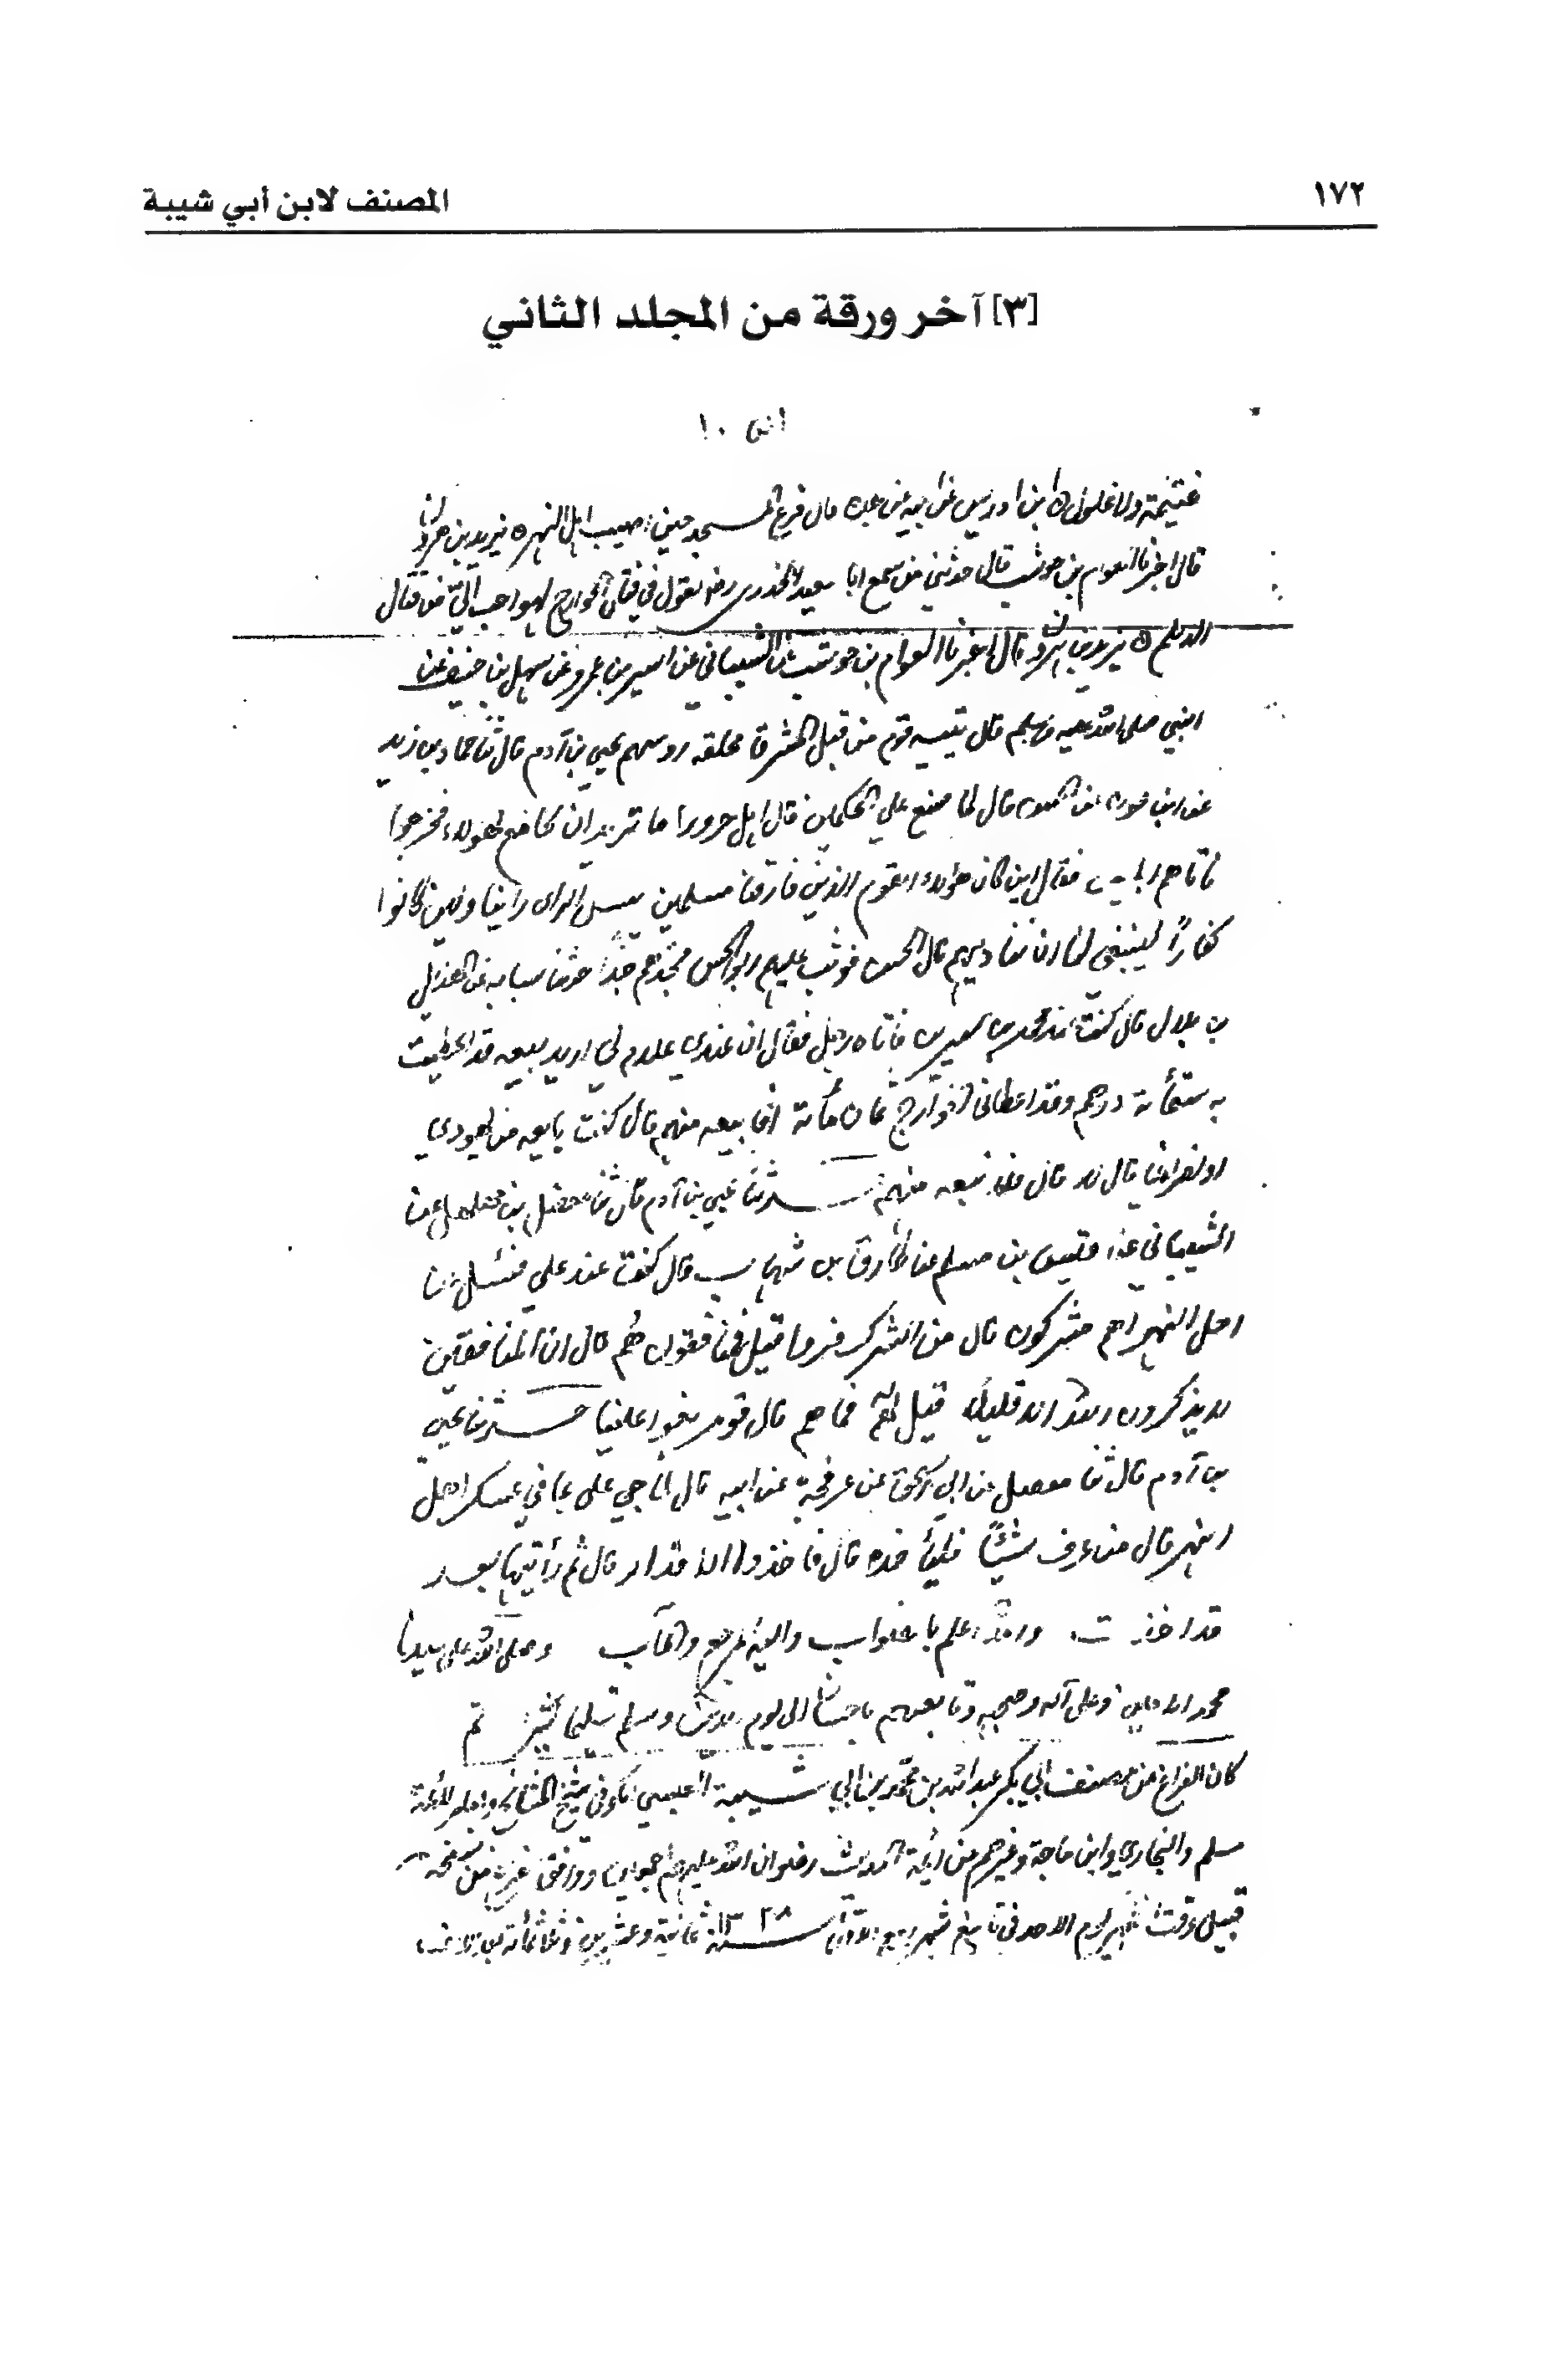 ١٧٢
المصنف لابن أبي شيبة
[٣] آخر ورقة من المجلد الثاني
غنيمة ولا غلول ابن ادريس عن ابيه عن جده قال فزع المسجد حين اصيب اهل النهر يزيد بن هرون
قال اخبرنا العوام بن حوشب قال حدثني من سمع ابا سعيد الخدري يقول في قتال الخوارج لهو احب الي من قتال
الديلم يزيد بن هرون قال اخبرنا العوام بن حوشب الشيباني عن اسير بن عمرو عن سهل بن حنيف عن
النبي صلى الله عليه وسلم قال يتيه قوم من قبل المشرق محلقة روسهم يحيى بن آدم قال ثنا حماد بن زيد
عن ابن عون عن الحسن قال لما صنع علي الحكمين قال اهل حرورا ما تريد ان لهولاء فخرجوا
فاتاهم ابليس فقال اين كان هؤلاء القوم الذين فارقنا مسلمين ليس الراى راينا ولئن كانوا
كفاراً لينبغي لنا ان قال الحسن فوثب عليهم ابو الحسن فجذهم جذاً حدثنا شبابة عن الهذيل
بن بلال قال كنت عند محمد بن سيرين فاتاه رجل فقال ان عندي غلام لي اريد بيعه قد اعطيت
به ستمأنة درهم وقد اعطاني الخوارج ثمان مأنة افابيعه منهم قال كنت بايعه من يهودي
او نصراني قال لا قال فلا تبعه منهم حدثنا يحيى بن آدم قال ثنا مفضل بن مهلهل عن
الشيباني عن قيس بن مسلم عن طارق بن شهاب قال كنت عند علي فسئل عن
اهل النهر اهم مشركون قال من الشرك فروا قيل فمنافقون هم قال ان المنافقين
لا يذكرون الله الا قليلا قيل له فما هم قال قوم بغوا علينا حدثنا يحيى
بن آدم قال ثنا مفضل عن ابي اسحق عن عرفجة عن ابيه قال لما جي علي بما في عسكر اهل
النهر قال من عرف شيئاً فليأخذه قال فاخذوا الا قدرا قال ثم رأيتها بعد
قد اخذت والله اعلم بالصواب واليه المرجع والمآب وصلى الله على سيدنا
محمد وعلى آله وصحبه وتابعيهم باحسان الى يوم الدين وسلم تسليما كثيرا تم
كان الفراغ من مصنف ابي بكر عبد الله بن محمد بن ابي شيبة العبسي الكوفي شيخ المشايخ
مسلم والبخاري وابن ماجة وغيرهم من ائمة الحديث رضوان الله عليهم اجمعين ووافق من نسخه
قبيل وقت ظهر يوم الاحد في تاسع شهر ربيع سنة ١٣٢٨ ثمانية وعشرين وثلاثمائة